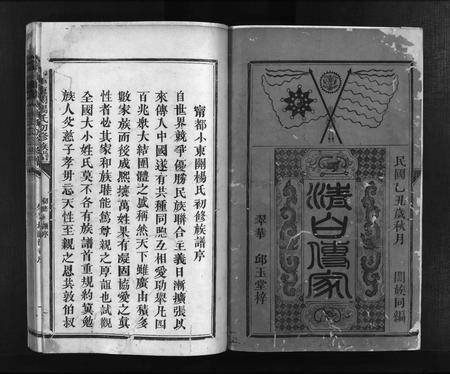 民國乙丑歲秋月
闔族同編
清白傳家
翠華 邱玉堂梓
甯都小東關楊氏初修族譜序
自世界競爭優勝民族聯合主義日漸擴張以
來傳人中國遂有共種同胞互相愛功舉凡四
百兆眾大結團體之盛稱然天下雖廣由積多
數家族而後成熙攘萬姓果有凝固協愛之真
性者必其家和族睦能篤尊親之厚誼也試觀
全國大小姓氏莫不各有族譜首重規約冀勉
族人父慈子孝毋忘天性至親之恩共敦伯叔